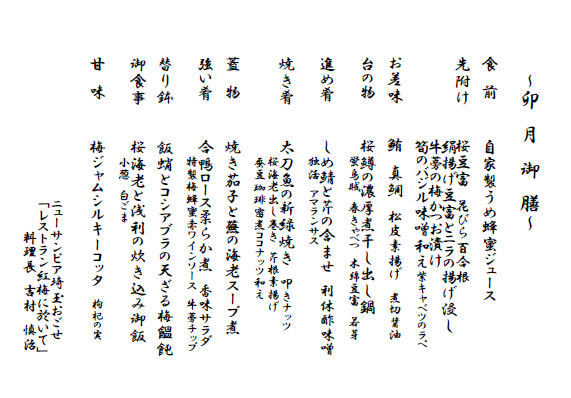 ～卯月御膳～
食前 自家製うめ蜂蜜ジュース
先附け 桜豆富 花びら百合根
絹揚げ豆富とニラの揚げ浸し
牛蒡の梅かつお漬け
筍のバジル味噌和え 紫キャベツのラペ
お差味 鮪 真鯛 松皮素揚げ 煮切醤油
台の物 桜鱒の濃厚煮干し出し鍋
蛍烏賊 春きゃべつ 木綿豆富 若芽
進め肴 しめ鯖と芹の含ませ 利休酢味噌
独活 アマランサス
焼き肴 太刀魚の新緑焼き 叩きナッツ
桜海老出し巻き 芹根素揚げ
蚕豆珈琲蜜煮ココナッツ和え
蓋物 焼き茄子と蕪の海老スープ煮
強い肴 合鴨ロース柔らか煮 香味サラダ
特製梅蜂蜜赤ワインソース 牛蒡チップ
替り鉢 飯蛸とコシアブラの天ざる梅饂飩
御食事 桜海老と浅利の炊き込み御飯
小葱 白ごま
甘味 梅ジャムシルキーコッタ 枸杞の実
ニューサンピア埼玉おごせ
「レストラン紅梅に於いて」
料理長 吉村 慎治